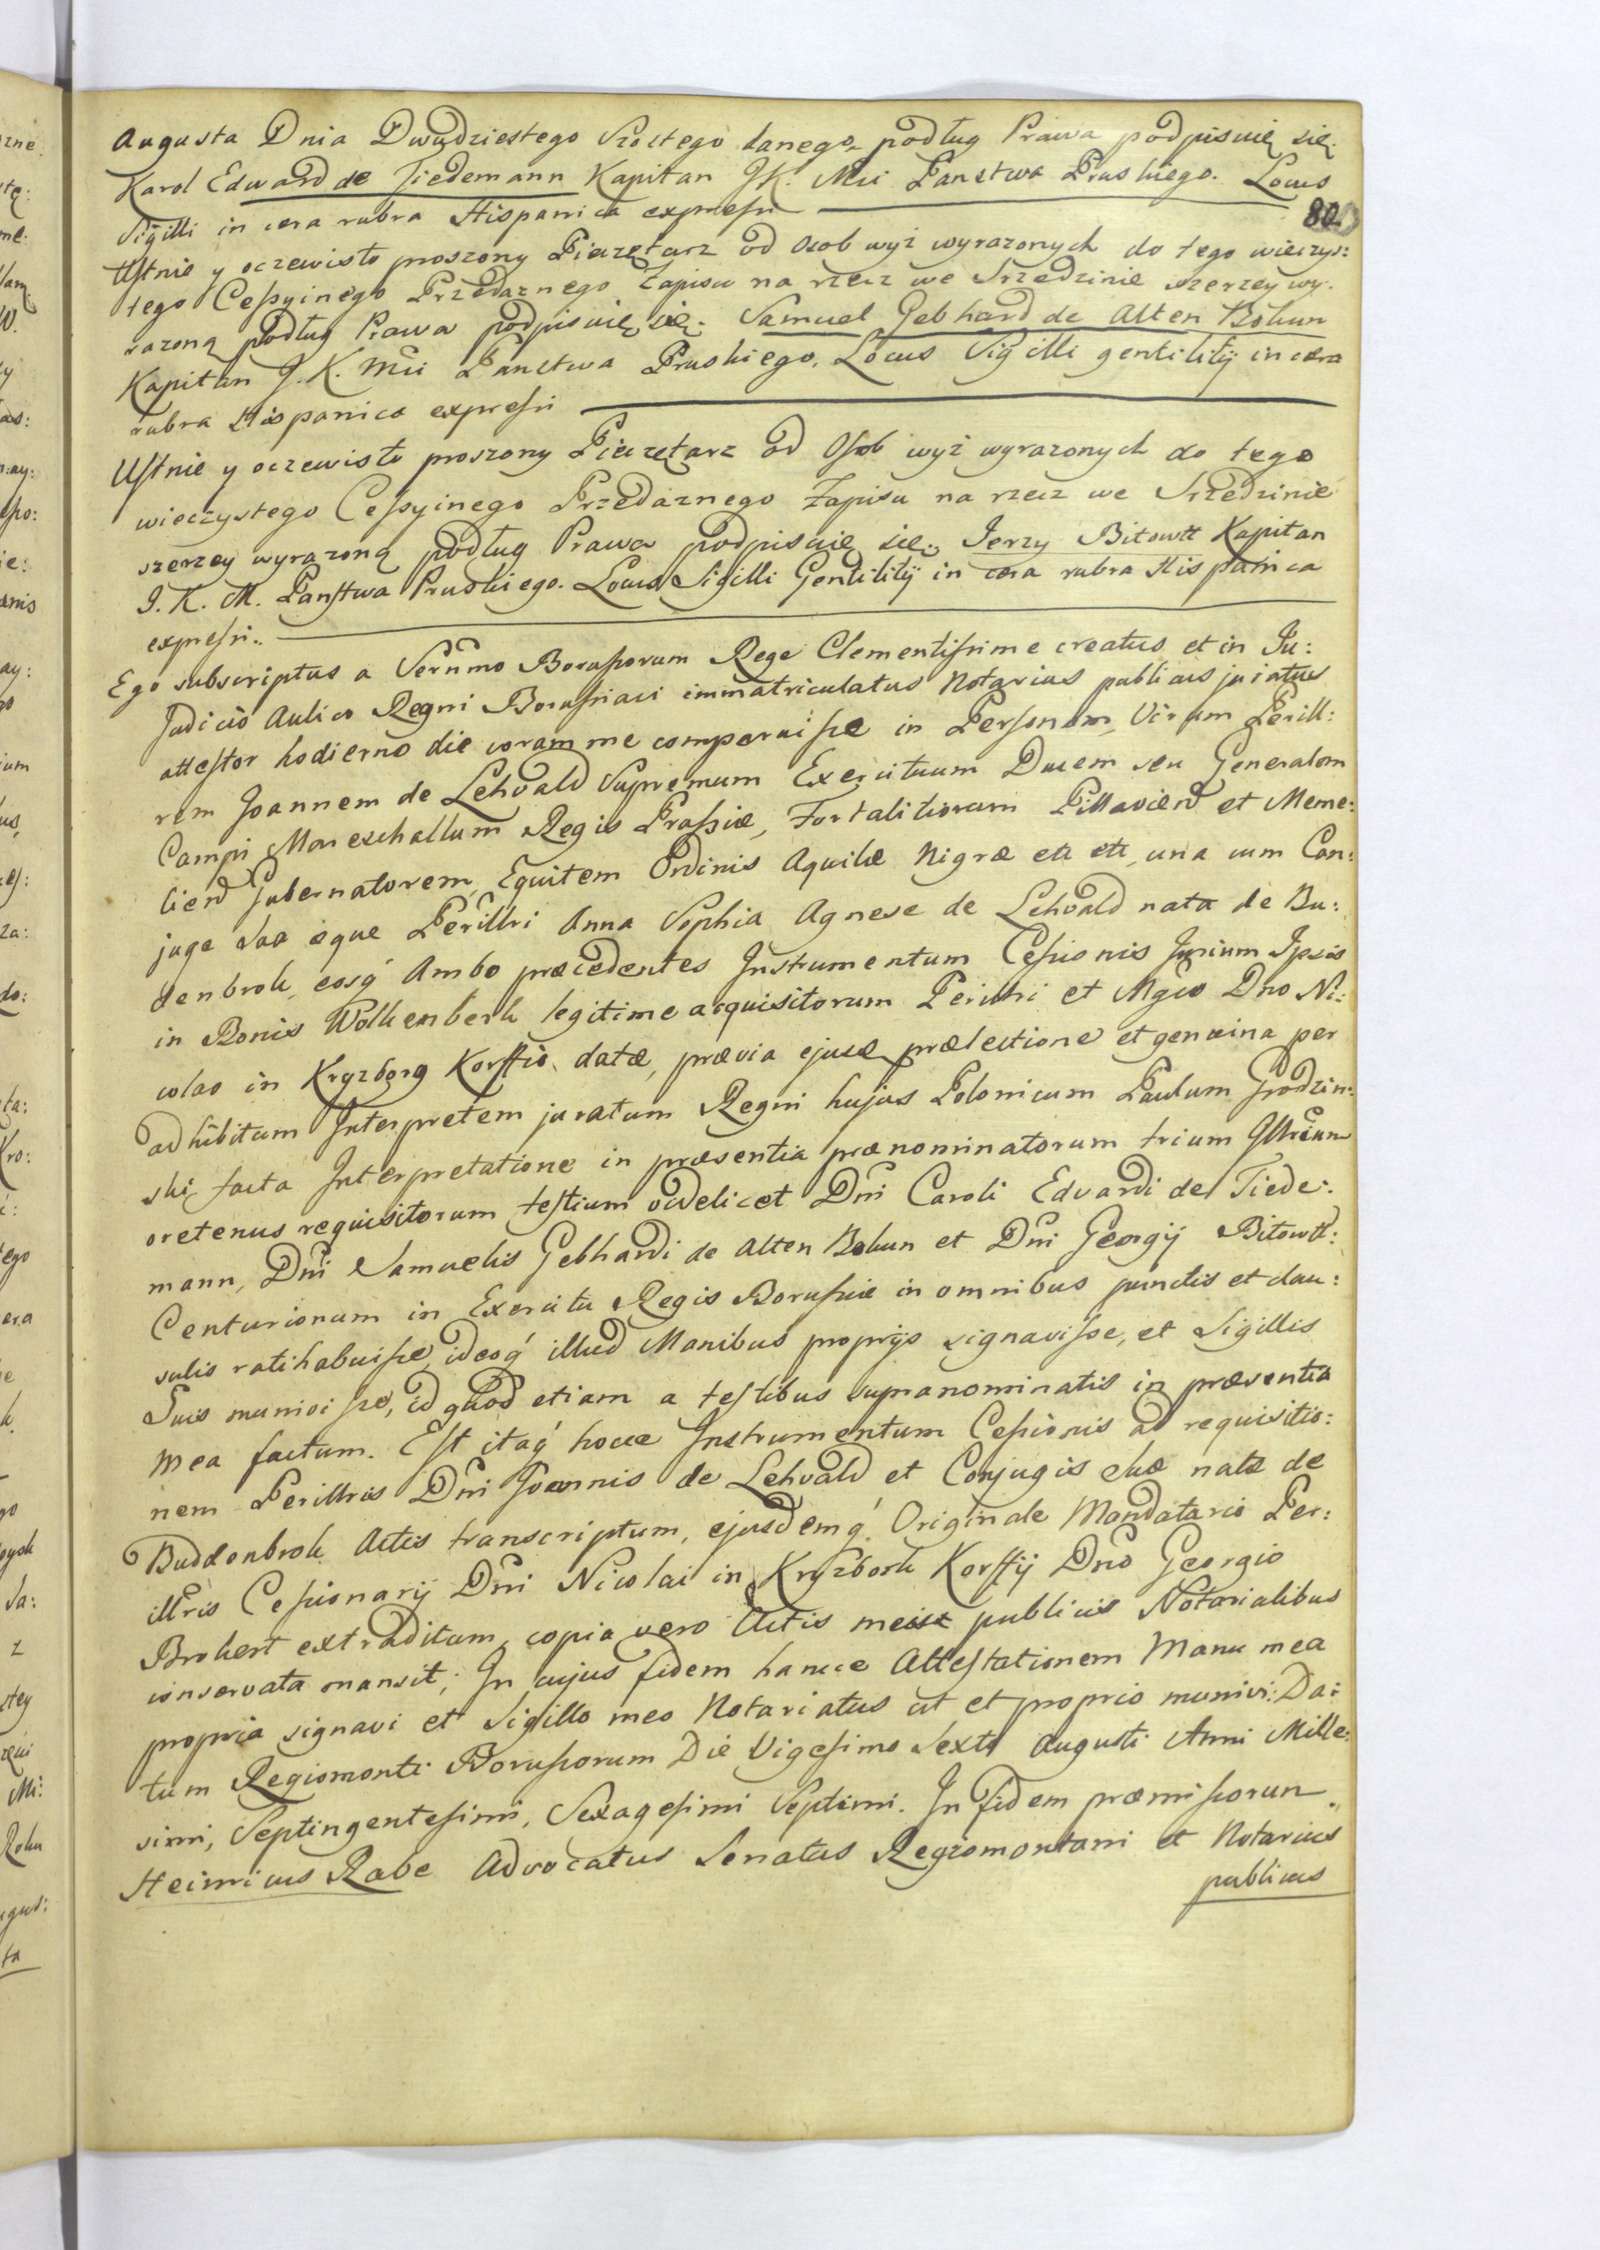 Augusta Dnia Dwudziestego Szostego danego, podług Prawa podpisuię się.
Karol Edward de Tiedemann Kapitan JK. Mci Panstwa Pruskiego. Locus
Sigilli in cera rubra Hispanica expressi
80
Ustnie y oczewisto proszony Pieczętarz od Osob wyż wyrazonych do tego wieczys:
tego Cessyinego Przedaznego Zapisu na rzecz we Srzedzinie szerzey wy:
razoną podług Prawa podpisuię się. Samuel Gebhard de Alten Bokun
Kapitan J. K. Mci Panstwa Pruskiego. Locus Sigilli gentilitij in cera
rubra Hispanica expressi
Ustnie y oczewisto proszony Pieczętarz od Osob wyż wyrazonych do tego
wieczystego Cessyinego Przedaznego Zapisu na rzecz we Srzedzinie
szerzey wyrazoną podług Prawa podpisuię się. Jerzy Bitowtt Kapitan
J. K. M. Panstwa Pruskiego. Locus Sigilli Gentilitij in cera rubra Hispanica
expressi.
Ego subscriptus a Sernmo Borussorum Rege Clementissime creatus et in Ju:
Judicio Aulico Regni Borussiaci immatriculatus Notarius publicus juratus
attestor hodierno die coram me comparuisse in Personam, Virum Perill:
rem Joannem de Lehvald Supremum Exercituum Ducem seu Generalem
Campi Mareschallum Regis Prussiæ, Fortalitiorum Pillavien et Meme:
lien Gubernatorem, Equitem Ordinis Aquilæ Nigræ etc etc, una cum Con:
juge Sua eque Perillri Anna Sophia Agnese de Lehvald nata de Bu:
denbrok, eosq́ Ambo præcedentes Instrumentum Cessionis Jurium Ipsis
in Bonis Wolkenberk legitime acquisitorum Perillri et Mgco Dno Ni:
colao in Kryzborg Korffio datæ, prævia ejusæ prælectione et genuina per
adhibitum Interpretem juratum Regni hujus Polonicum Paulum Grodzin:
ski facta Interpretatione in præsentia prænominatorum trium Illrium
oretenus requisitorum testium videlicet Dni Caroli Edvardi de Tiede:
mann, Dni Samuelis Gebhardi de Alten Bokun et Dni Georgij Bitowtt:
Centurionum in Exercitu Regis Borussiæ in omnibus punctis et clau:
sulis ratihabuisse, ideoq́ illud Manibus proprijs signavisse, et Sigillis
Suis munivisse, id quod etiam a testibus supranominatis in præsentia
mea factum. Est itaq́ hocce Instrumentum Cessionis ad requisitio:
nem Perillris Dni Joannis de Lehvald et Conjugis Suæ natæ de
Buddenbrok Actis transcriptum, ejusdemq́ Originale Mandatario Per:
illris Cessionarij Dni Nicolai in Kryzbork Korffij Dno Georgio
Brokert extraditum, copia vero Actis meis publicis Notarialibus
conservata mansit; In cujus fidem hancce Attestationem Manu mea
propria signavi et Sigillo meo Notariatus ut et proprio munivi. Da:
tum Regiomonti Borussorum Die Vigesimo Sexto Augusti Anni Mille:
simi, Septingentesimi, Sexagesimi Septimi. In fidem præmissorum
Heinricus Rabe Advocatus Senatus Regiomontani et Notarius
publicus